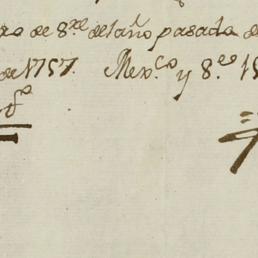 de 8.re del año pasado de
de 1757. Mex.co y 8.re 1